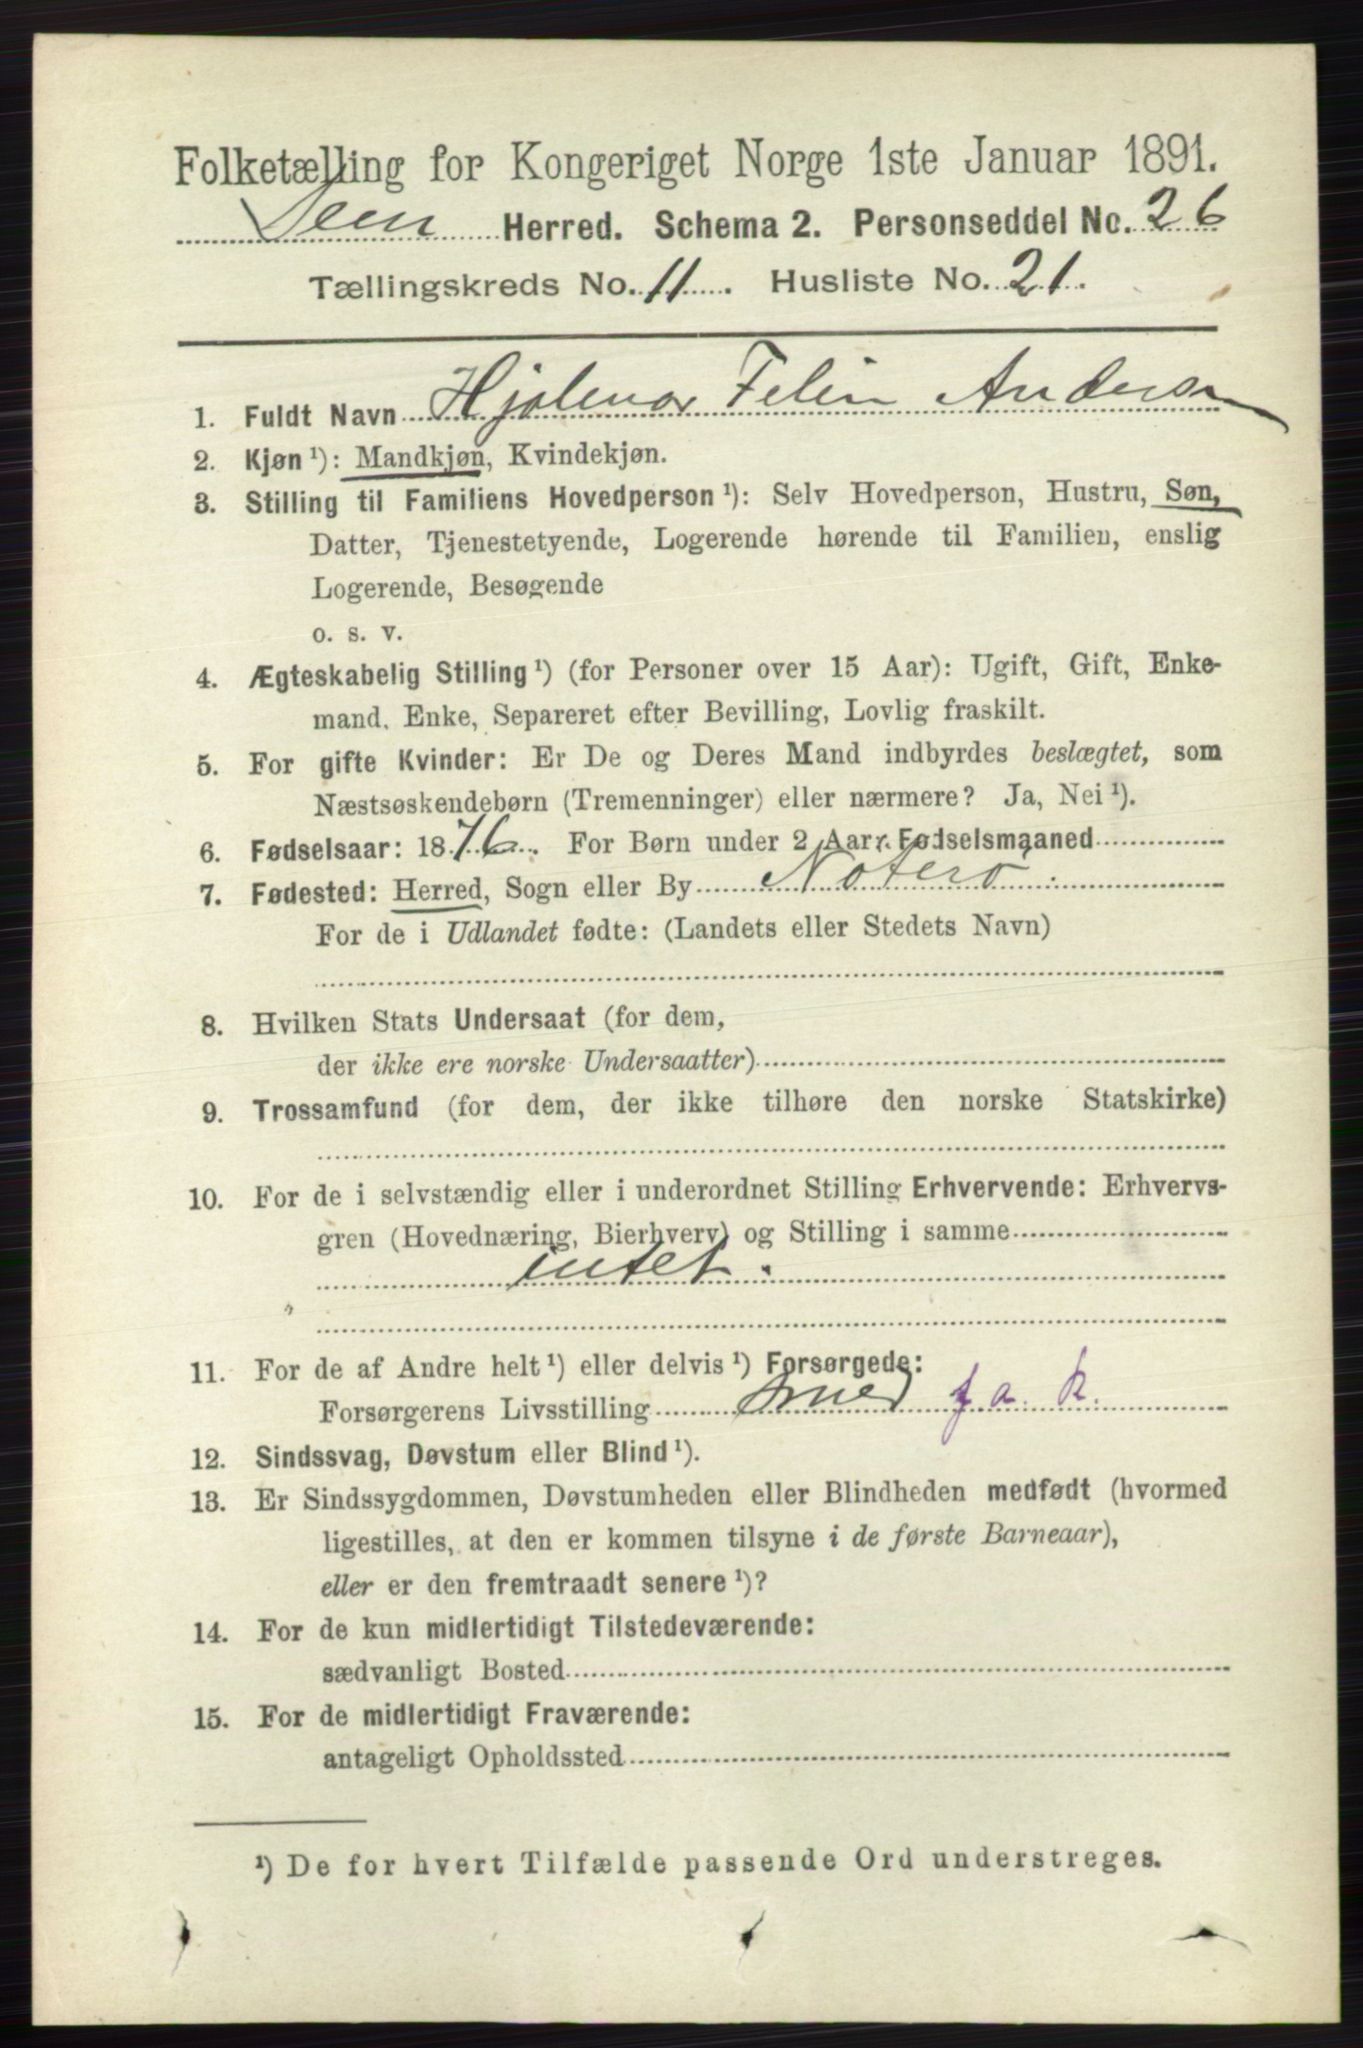 Folketælling for Kongeriget Norge 1ste Januar 1891.
Sem Herred. Schema 2. Personseddel No. 26
Tællingskreds No. 11. Husliste No. 21.
1. Fuldt Navn Hjalmar Andersen
2. Kjøn ¹): Mandkjøn, Kvindekjøn.
3. Stilling til Familiens Hovedperson ¹): Selv Hovedperson, Hustru, Søn,
Datter, Tjenestetyende, Logerende hørende til Familien, enslig
Logerende, Besøgende
o. s. v.
4. Ægteskabelig Stilling ¹) (for Personer over 15 Aar): Ugift, Gift, Enke-
mand, Enke, Separeret efter Bevilling, Lovlig fraskilt.
5. For gifte Kvinder: Er De og Deres Mand indbyrdes beslægtet, som
Næstsøskendebørn (Tremenninger) eller nærmere? Ja, Nei ¹).
6. Fødselsaar: 1876. For Børn under 2 Aar: Fødselsmaaned
7. Fødested: Herred, Sogn eller By Noterø.
For de i Udlandet fødte: (Landets eller Stedets Navn)
8. Hvilken Stats Undersaat (for dem,
der ikke ere norske Undersaatter)
9. Trossamfund (for dem, der ikke tilhøre den norske Statskirke)
10. For de i selvstændig eller i underordnet Stilling Erhvervende: Erhvervs-
gren (Hovednæring, Bierhverv) og Stilling i samme
intet.
11. For de af Andre helt ¹) eller delvis ¹) Forsørgede:
Forsørgerens Livsstilling smed f. a. k.
12. Sindssvag, Døvstum eller Blind ¹).
13. Er Sindssygdommen, Døvstumheden eller Blindheden medfødt (hvormed
ligestilles, at den er kommen tilsyne i de første Barneaar),
eller er den fremtraadt senere ¹)?
14. For de kun midlertidigt Tilstedeværende:
sædvanligt Bosted
15. For de midlertidigt Fraværende:
antageligt Opholdssted
¹) De for hvert Tilfælde passende Ord understreges.